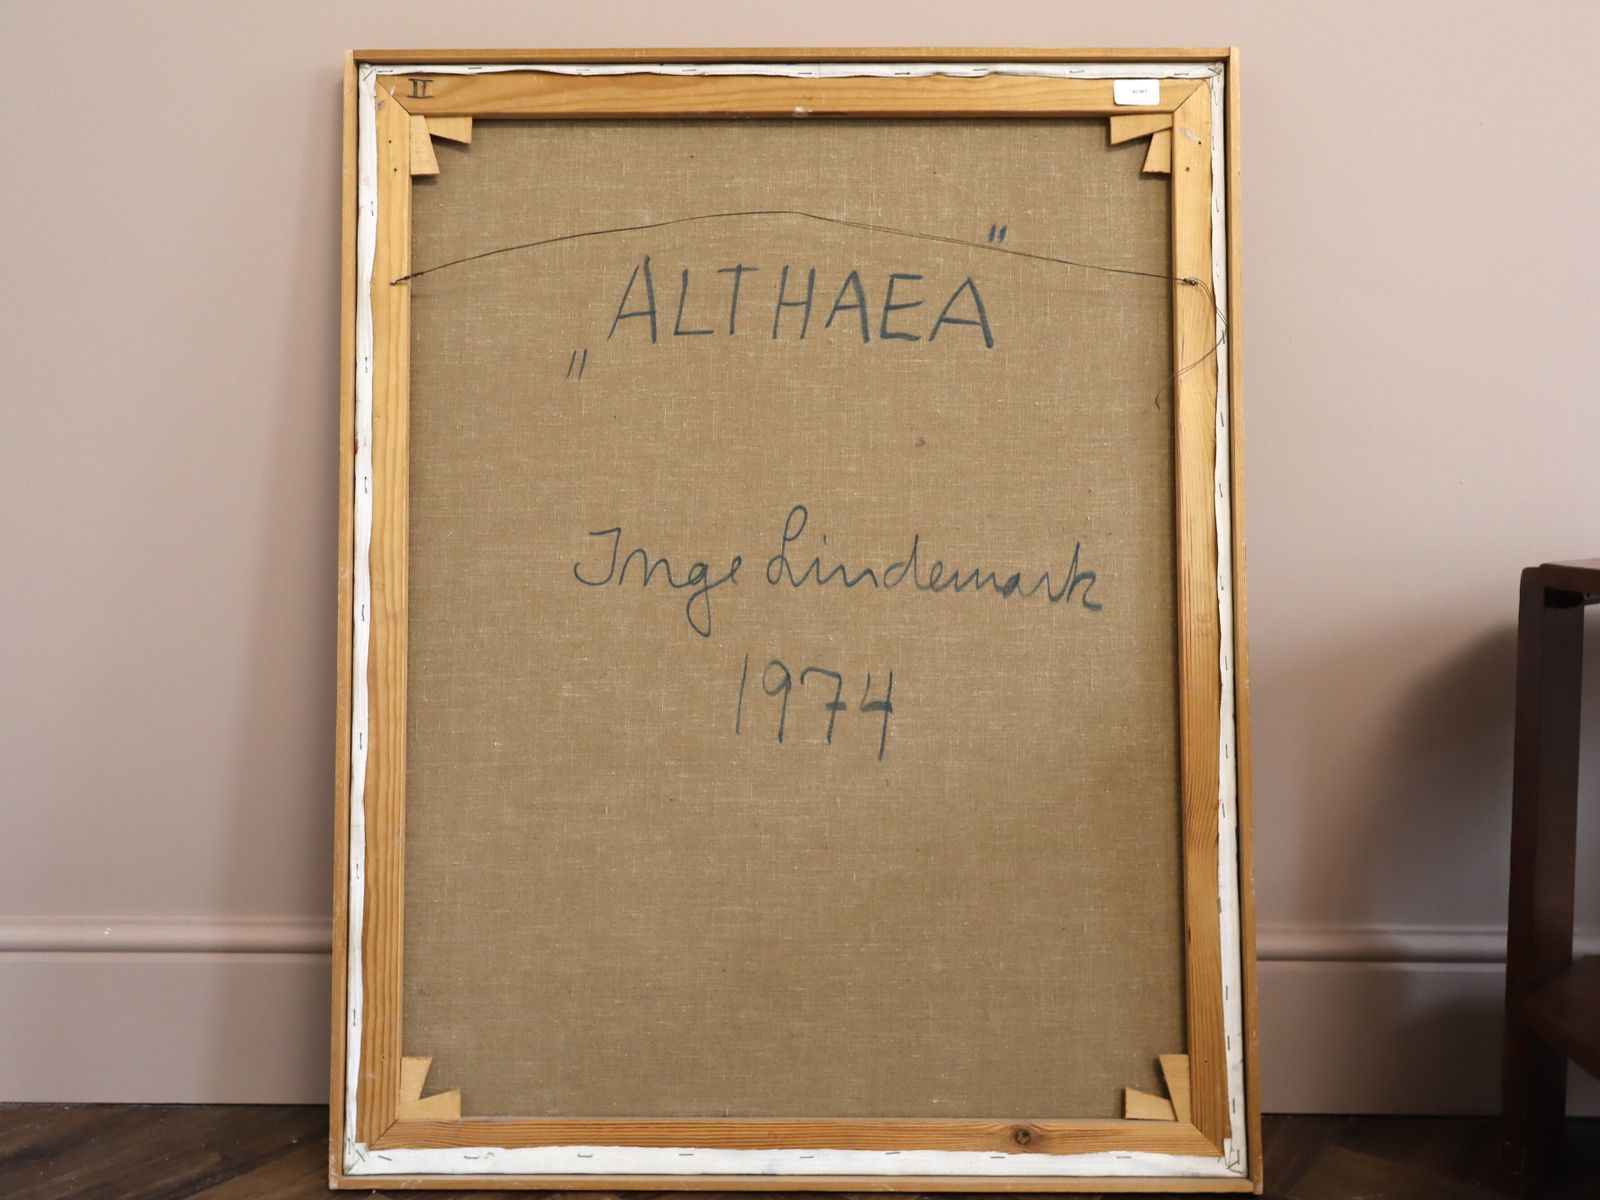 II
„ALTHAEA"
Inge Lindemark
1974